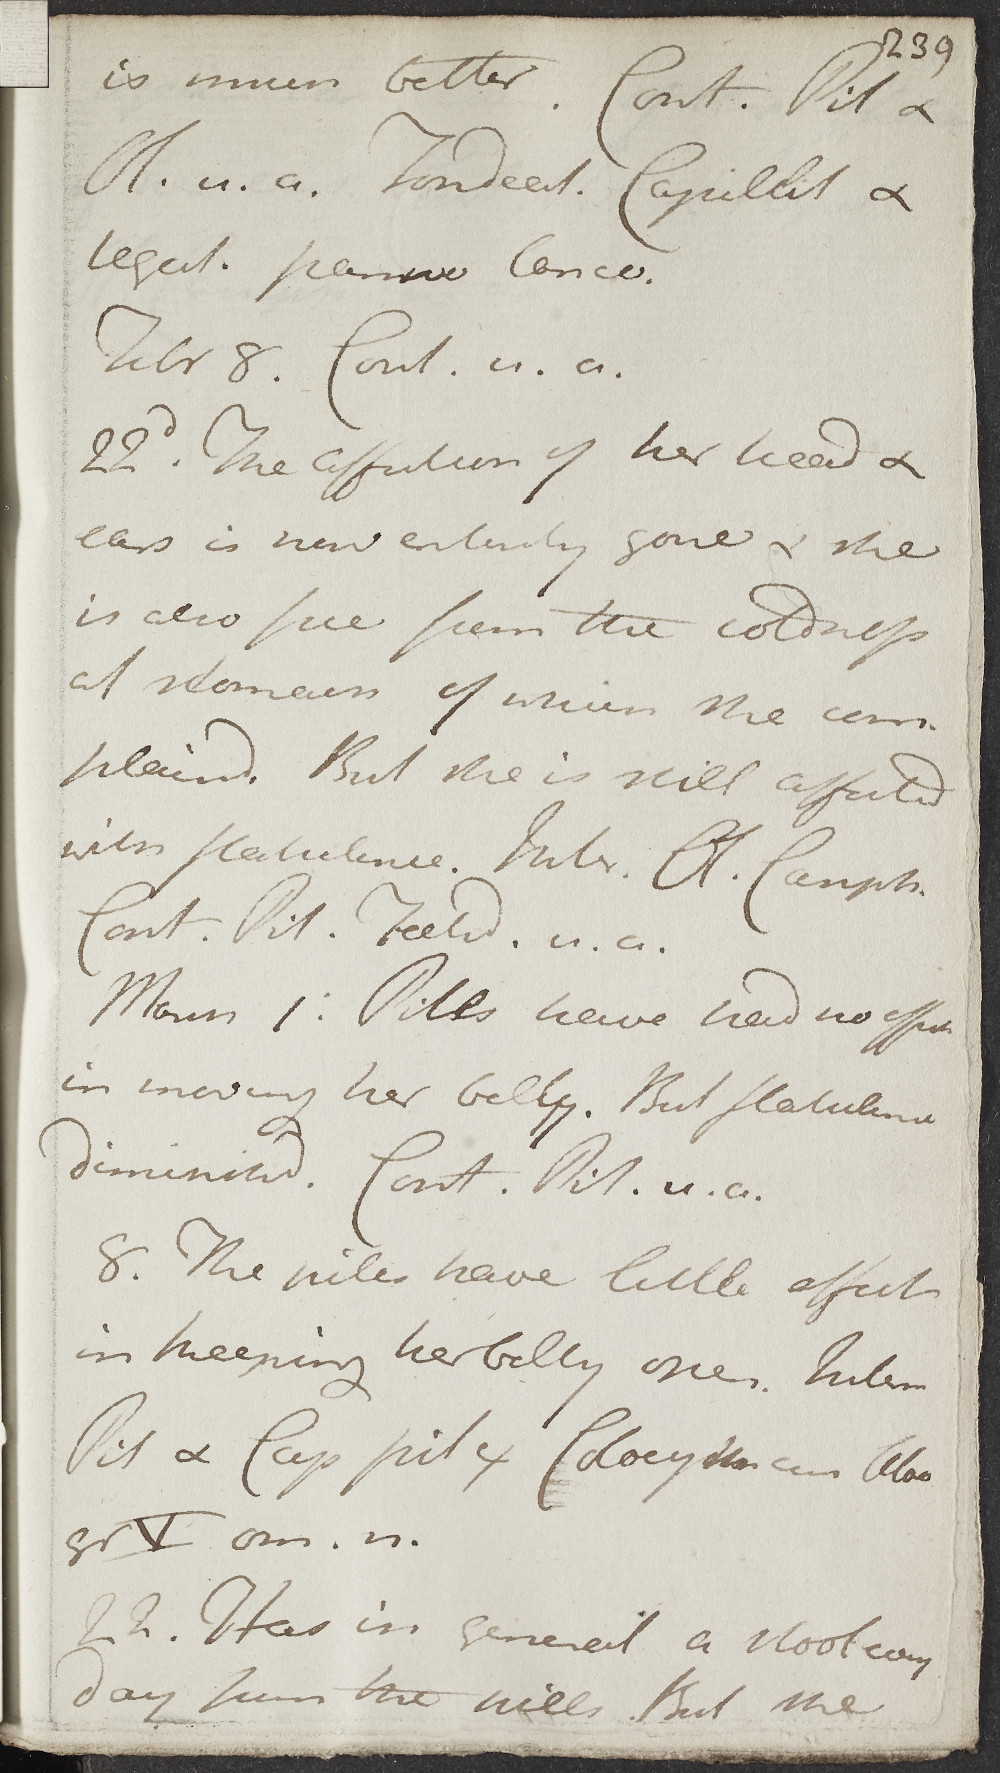 239
is much better. Cont. Pil &
Ol. u. a. Tondeat. Capillit &
tegat. panno laneo.
Febr 8. Cont. u. a.
22d. The affection of her head &
ears is now entirely gone & she
is also free from the coldness
at stomach of which she com-
plaind. But she is still affected
with flatulence. Inter. Ol. Camph.
Cont. Pil. Foetid. u. a.
March 1: Pills have had no effect
in moving her belly. But flatulence
diminishd. Cont. Pil. u. a.
8. The pills have little effect
in keeping her belly open. Interm
Pil & Cap pil ex Colocynth cum Aloe
gr V om. n.
22. Has in general a stool every
day from the pills. But she